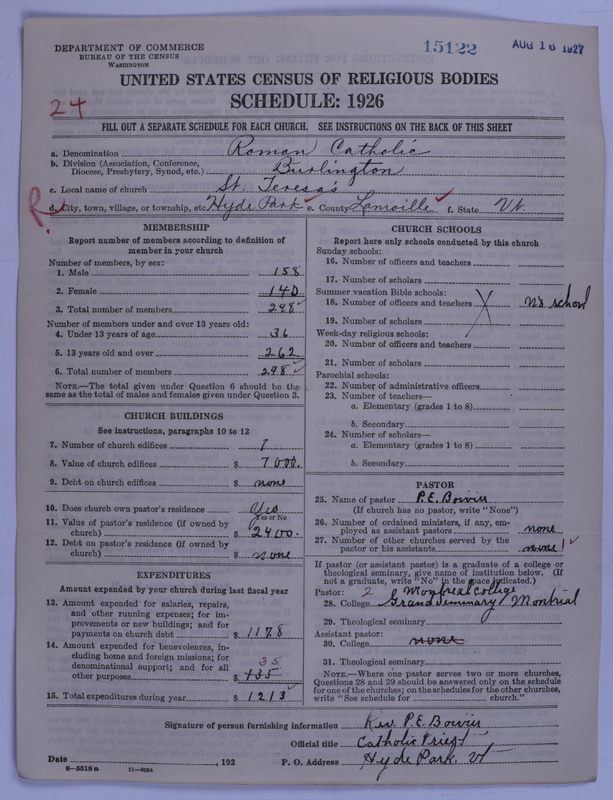 DEPARTMENT OF COMMERCE
BUREAU OF THE CENSUS
WASHINGTON
15122
AUG 16 1927
UNITED STATES CENSUS OF RELIGIOUS BODIES
SCHEDULE: 1926
24
FILL OUT A SEPARATE SCHEDULE FOR EACH CHURCH. SEE INSTRUCTIONS ON THE BACK OF THIS SHEET
a. Denomination Roman Catholic
b. Division (Association, Conference, Diocese, Presbytery, Synod, etc.) Burlington
c. Local name of church St. Teresa's
R. d. City, town, village, or township, etc. Hyde Park ✓ e. County Lamoille ✓ f. State Vt
MEMBERSHIP
Report number of members according to definition of
member in your church
Number of members, by sex:
1. Male 158
2. Female 140
3. Total number of members 298
Number of members under and over 13 years old:
4. Under 13 years of age 36
5. 13 years old and over 262
6. Total number of members 298 ✓
NOTE.—The total given under Question 6 should be the
same as the total of males and females given under Question 3.
CHURCH BUILDINGS
See instructions, paragraphs 10 to 12
7. Number of church edifices 1
8. Value of church edifices $ 7000.
9. Debt on church edifices $ none
10. Does church own pastor's residence Yes
Yes or No
11. Value of pastor's residence (if owned by
church) $ 2400.
12. Debt on pastor's residence (if owned by
church) $ none
EXPENDITURES
Amount expended by your church during last fiscal year
13. Amount expended for salaries, repairs,
and other running expenses; for im-
provements or new buildings; and for
payments on church debt $ 1178
14. Amount expended for benevolences, in-
cluding home and foreign missions; for
denominational support; and for all
other purposes $ 135
35
15. Total expenditures during year $ 1213 ✓
CHURCH SCHOOLS
Report here only schools conducted by this church
Sunday schools:
16. Number of officers and teachers
17. Number of scholars
Summer vacation Bible schools:
18. Number of officers and teachers X No school
19. Number of scholars
Week-day religious schools:
20. Number of officers and teachers
21. Number of scholars
Parochial schools:
22. Number of administrative officers
23. Number of teachers—
a. Elementary (grades 1 to 8)
b. Secondary
24. Number of scholars—
a. Elementary (grades 1 to 8)
b. Secondary
PASTOR
25. Name of pastor P.E.
(If church has no pastor, write "None")
26. Number of ordained ministers, if any, em-
ployed as assistant pastors none
27. Number of other churches served by the
pastor or his assistants none 1 ✓
If pastor (or assistant pastor) is a graduate of a college or
theological seminary, give name of institution below. (If
not a graduate, write "No" in the space indicated.)
Pastor: 2 Montreal College
28. College Grand Seminary Montreal
29. Theological seminary
Assistant pastor:
30. College none
31. Theological seminary
NOTE.—Where one pastor serves two or more churches,
Questions 28 and 29 should be answered only on the schedule
for one of the churches; on the schedules for the other churches,
write "See schedule for church."
Signature of person furnishing information Rev. P.E.
Official title Catholic Priest
Date , 192 P. O. Address Hyde Park. Vt
8—5518a 11—9054